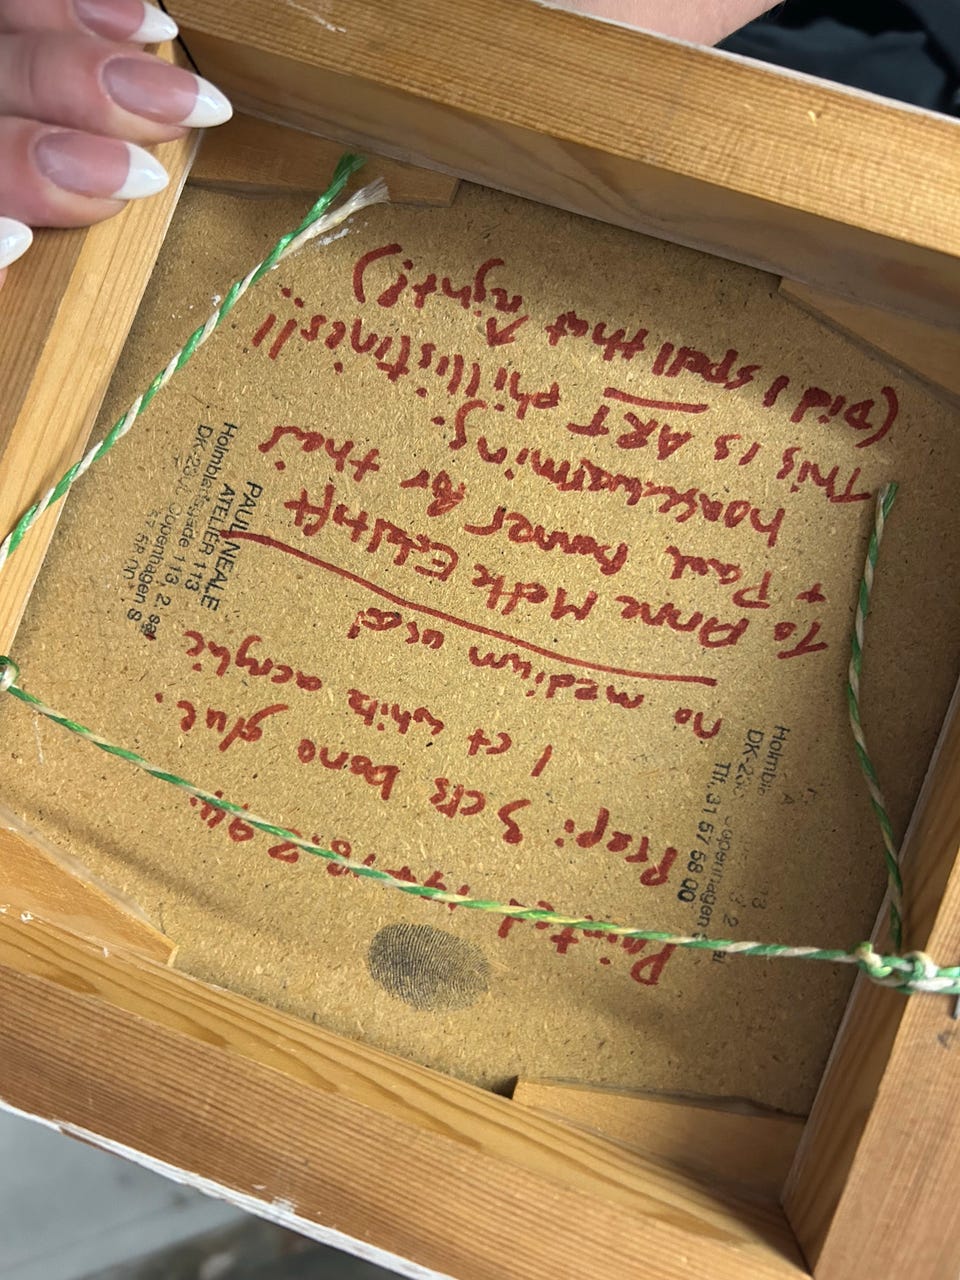 Painted 18.2.94.
Prep: 3 cts bone glue.
1 ct white acrylic
no medium used
To Anne Mette
+ Paul for their
housewarming.
This is ART phillistines!!
(Did I spell that ↑ right!)
PAUL NEALE
ATELIER 113
Holmbladsgade 113, 2. sal
DK-23 Copenhagen S
57 58 00
Holmbla
DK-23 openhagen
Tlf. 31 57 58 00